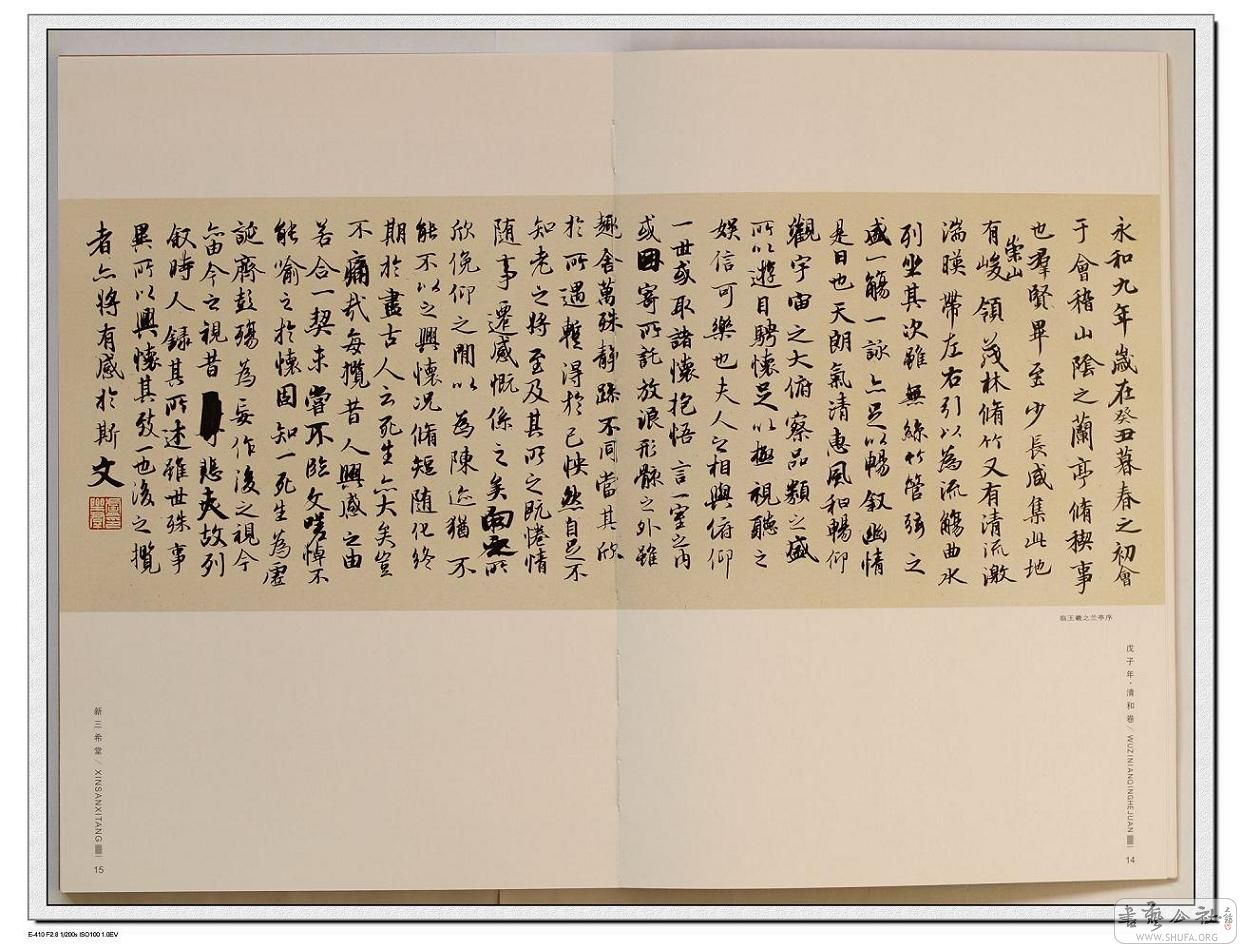 永和九年歲在癸丑暮春之初會
于會稽山陰之蘭亭脩稧事
也羣賢畢至少長咸集此地
有崇山峻領茂林脩竹又有清流激
湍暎帶左右引以為流觴曲水
列坐其次雖無絲竹管弦之
盛一觴一詠亦足以暢叙幽情
是日也天朗氣清惠風和暢仰
觀宇宙之大俯察品類之盛
所以遊目騁懷足以極視聽之
娛信可樂也夫人之相與俯仰
一世或取諸懷抱悟言一室之內
或因寄所託放浪形骸之外雖
趣舍萬殊靜躁不同當其欣
於所遇蹔得於己怏然自足不
知老之將至及其所之既惓情
隨事遷感慨係之矣向之所
欣俛仰之間以為陳迹猶不
能不以之興懷況脩短隨化終
期於盡古人云死生亦大矣豈
不痛哉每攬昔人興感之由
若合一契未嘗不臨文嗟悼不
能喻之於懷固知一死生為虛
誕齊彭殤為妄作後之視今
亦由今之視昔悲夫故列
叙時人錄其所述雖世殊事
異所以興懷其致一也後之攬
者亦將有感於斯文
临王羲之兰亭序
戊子年·清和卷/WUZINIANQINGHEJUAN
14
新三希堂/XINSANXITANG
15
E-410 F2.8 1/200s ISO100 1.0EV
書藝公社
WWW.SHUFA.ORG